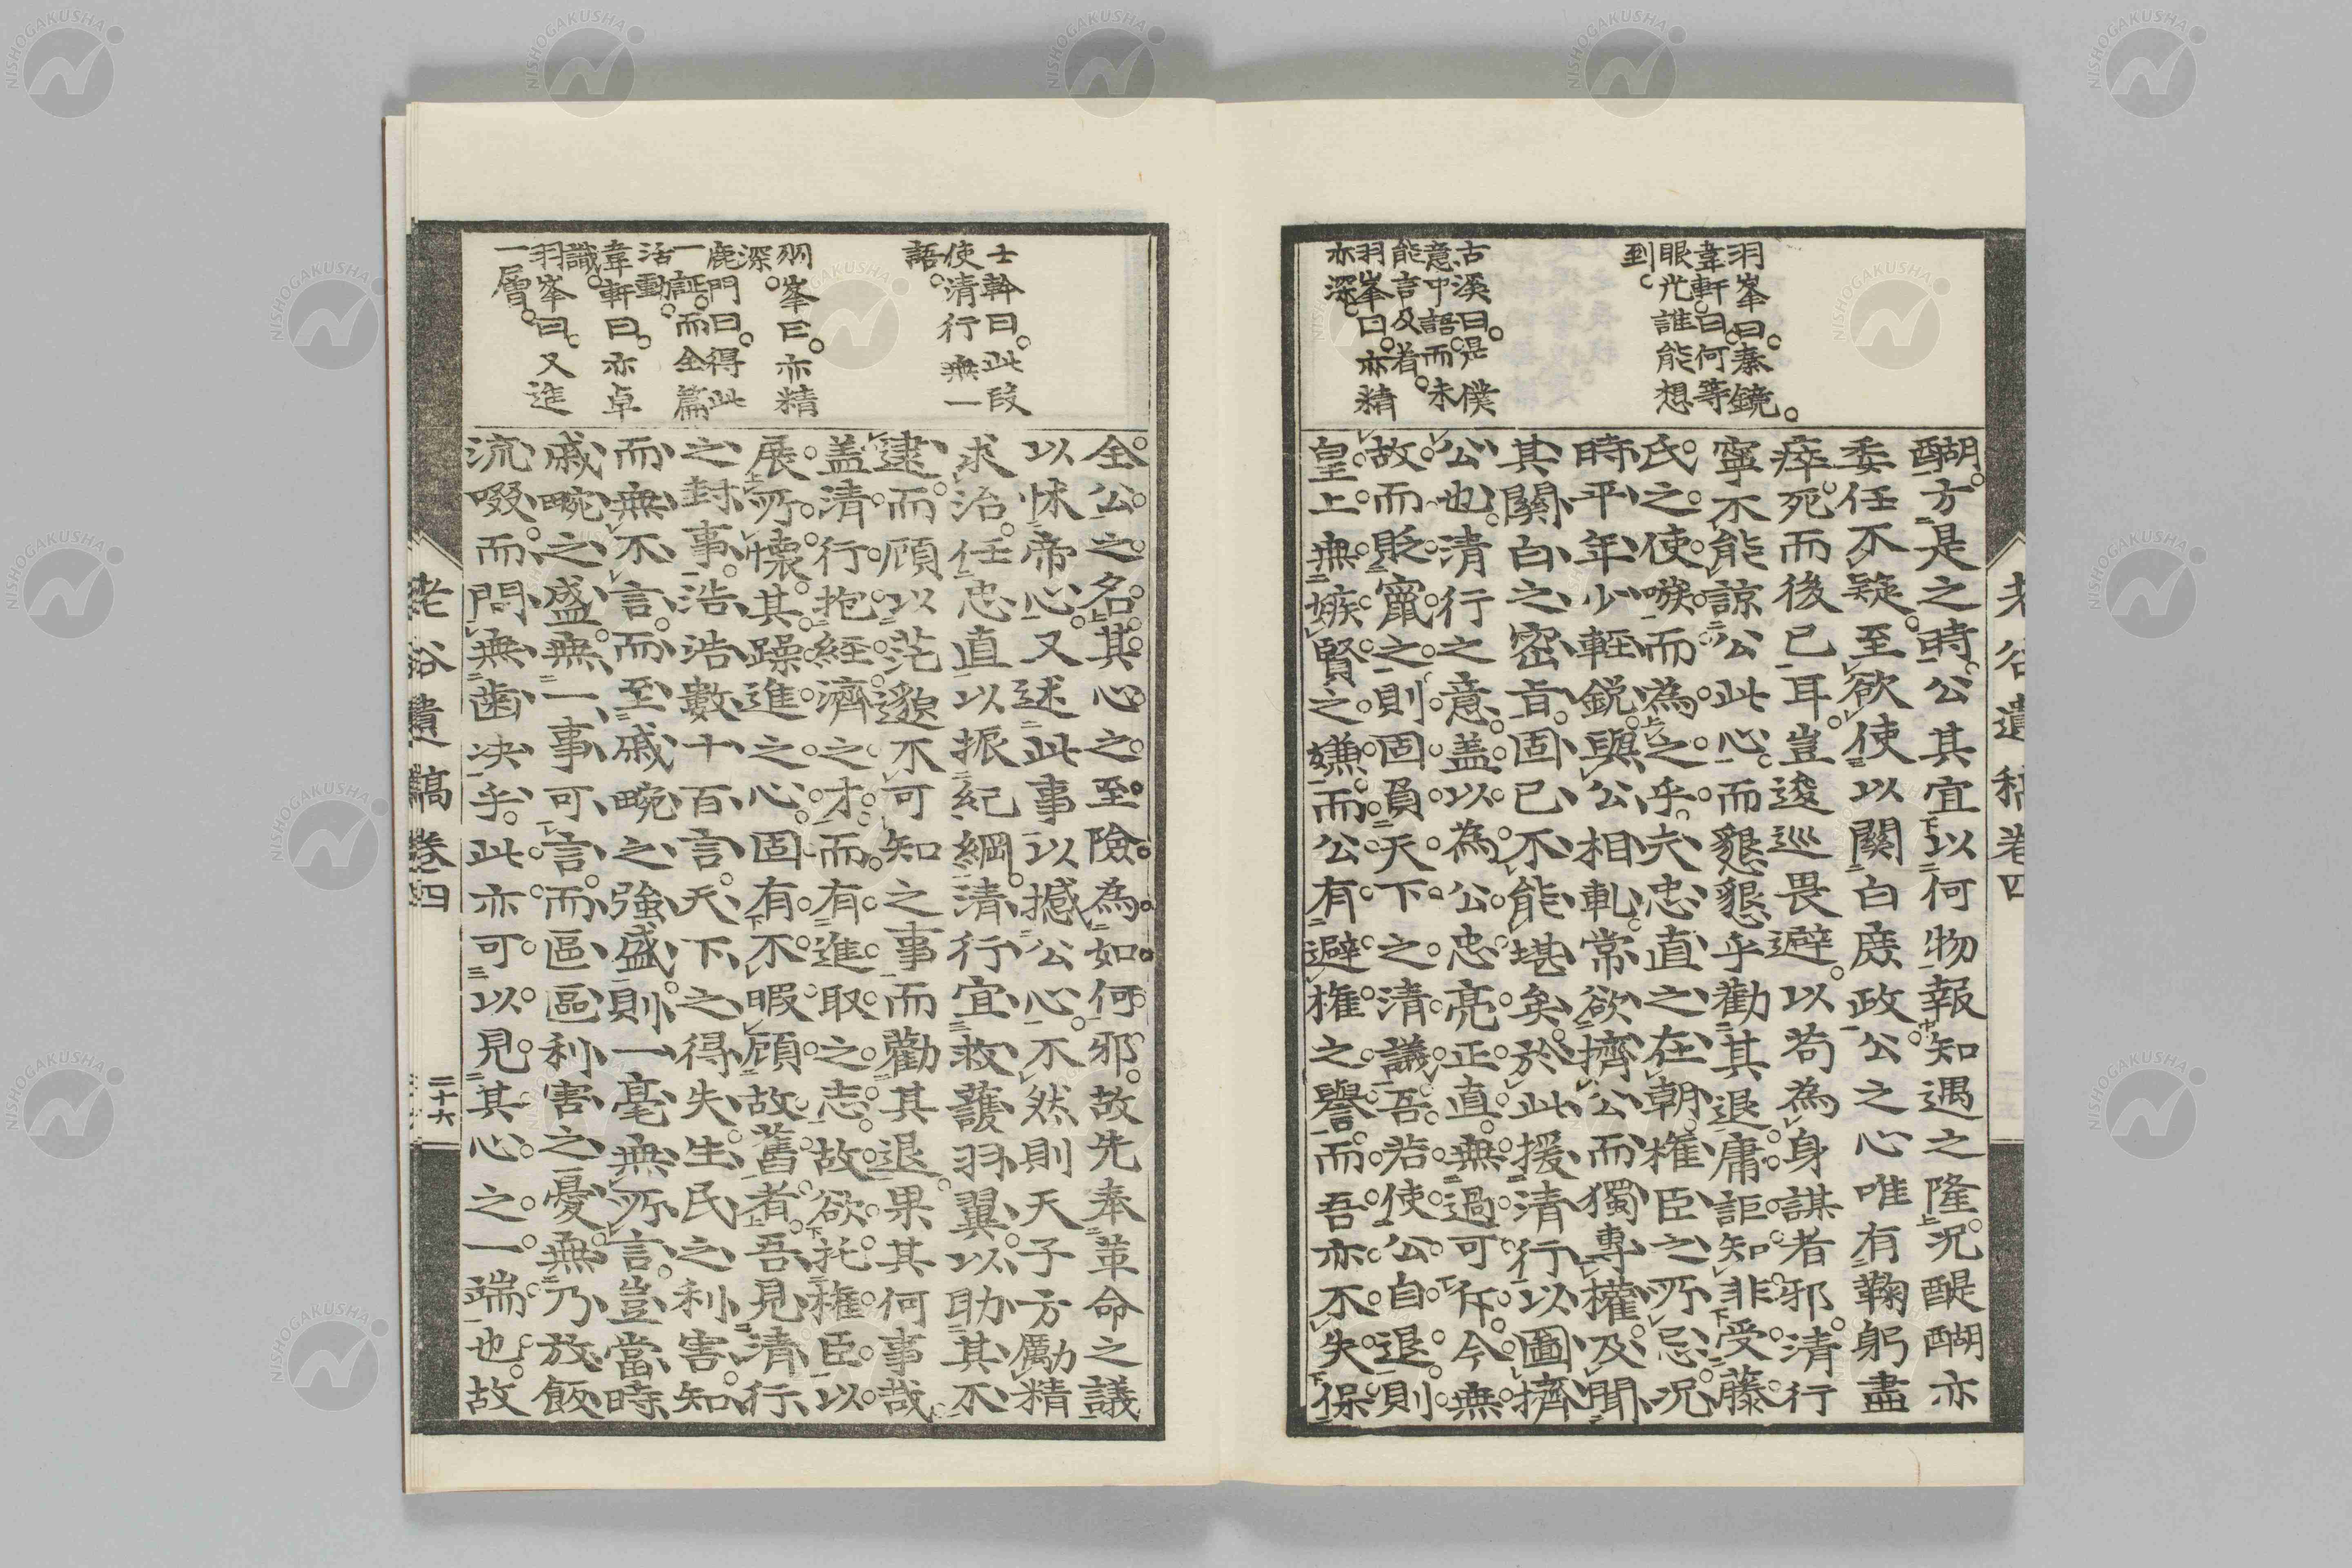 羽峯曰。秦鏡。
韋軒曰。何等
眼光誰能想
到。
古溪曰。是僕
意中語而未
能言及者。
羽峯曰。亦精
亦深。
醐。方是之時。公其宜以何物報知遇之隆。況醍醐亦
委任不疑。至欲使以關白庶政。公之心唯有鞠躬盡
瘁。死而後已耳。豈逡巡畏避。以苟為身謀者邪。清行
寧不能諒公此心。而懇懇乎勸其退。庸詎知非受藤
氏之使嗾而為之乎。夫忠直之在朝。權臣之所忌。況
時平年少輕銳。與公相軋。常欲擠公而獨專權。及聞
其關白之密旨。固已不能堪矣。於此援清行以圖擠
公也。清行之意。蓋以為公忠亮正直。無過可斥。今無
故而貶竄之。則固負天下之清議。吾若使公自退。則
皇上無嫉賢之嫌。而公有避権之譽。而吾亦不失保
老谷遺稿卷四
士幹曰。此段
使清行無一
語。
羽峯曰。亦精
深。
鹿門曰。得此
一証。而全篇
活動。
韋軒曰。亦卓
識。
羽峯曰。又進
一層。
全公之名。其心之至險為如何邪。故先奉革命之議
以怵帝心。又述此事以撼公心。不然則天子方勵精
求治。任忠直以振紀綱。清行宜救護羽翼。以助其不
逮。而顧以茫邈不可知之事而勸其退。果其何事哉。
盖清行抱經濟之才。而有進取之志。故欲托権臣以
展所懷。其躁進之心。固有不暇顧故舊者。吾見清行
之封事。浩浩數十百言。天下之得失。生民之利害。知
而無不言。而至戚畹之強盛。則一毫無所言。豈當時
戚畹之盛。無一事可言。而區區利害之憂。無乃放飯
流啜。而問無齒決乎。此亦可以見其心之一端也。故
老谷遺稿卷四
二十六